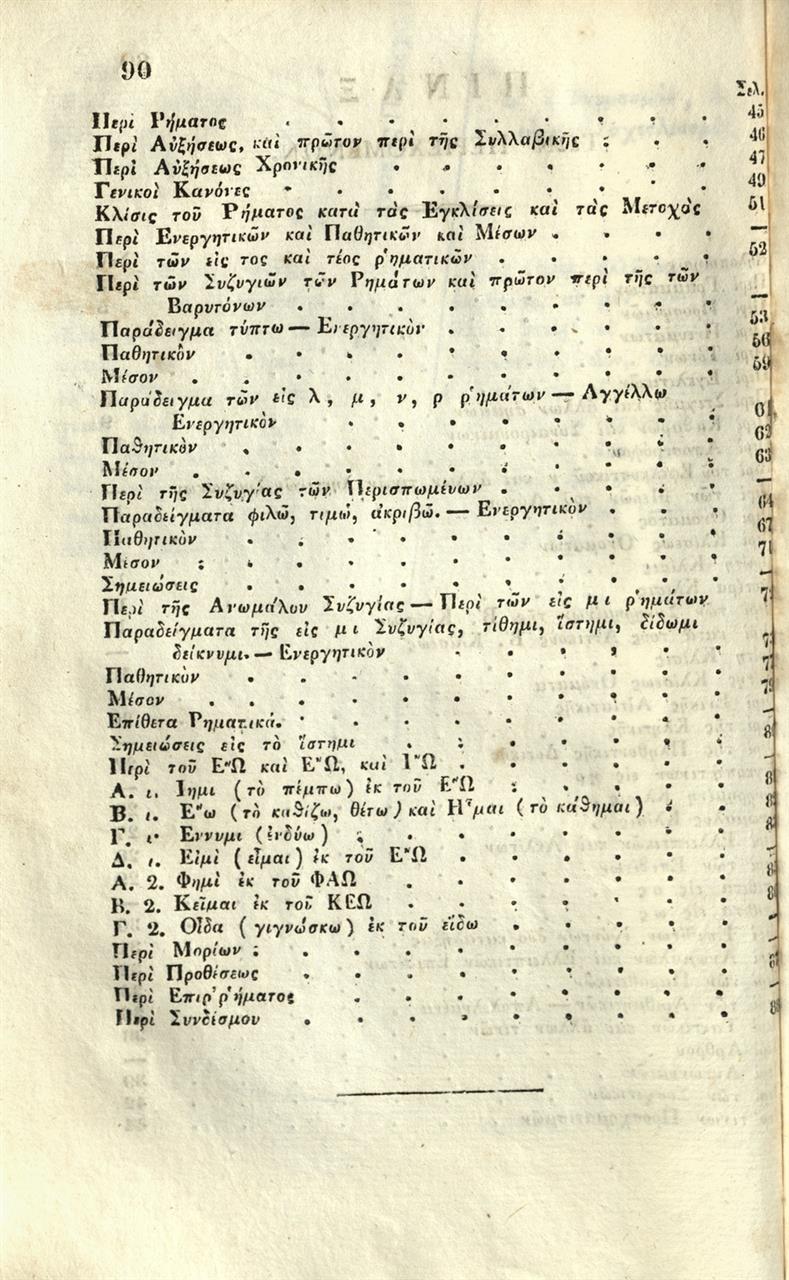 90
Σελ.
Περὶ Ρήματος . . . . . . . . . 45
Περὶ Αὐξήσεως, καὶ πρῶτον περὶ τῆς Συλλαβικῆς . . . 46
Περὶ Αὐξήσεως Χρονικῆς . . . . . . . 47
Γενικοὶ Κανόνες . . . . . . . . . 49
Κλίσις τοῦ Ρήματος κατὰ τὰς Ἐγκλίσεις καὶ τὰς Μετοχὰς 51
Περὶ Ενεργητικῶν καὶ Παθητικῶν καὶ Μέσων . . . . —
Περὶ τῶν εἰς τος καὶ τέος ῥηματικῶν . . . . . 52
Περὶ τῶν Συζυγιῶν τῶν Ρημάτων καὶ πρῶτον περὶ τῆς τῶν
Βαρυτόνων . . . . . . . . . —
Παράδειγμα τύπτω — Ενεργητικὸν . . . . . . 53
Παθητικὸν . . . . . . . . . . 56
Μέσον . . . . . . . . . . . 59
Παράδειγμα τῶν εἰς λ, μ, ν, ρ ῥημάτων — Αγγέλλω
Ενεργητικὸν . . . . . . . . 61
Παθητικὸν . . . . . . . . . . 62
Μέσον . . . . . . . . . . . 63
Περὶ τῆς Συζυγίας τῶν Περισπωμένων . . . . . —
Παραδείγματα φιλῶ, τιμῶ, ἀκριβῶ. — Ενεργητικὸν . . . 64
Παθητικὸν . . . . . . . . . . 67
Μέσον . . . . . . . . . . . 71
Σημειώσεις . . . . . . . . . . —
Περὶ τῆς Ανωμάλου Συζυγίας — Περὶ τῶν εἰς μι ῥημάτων
Παραδείγματα τῆς εἰς μι Συζυγίας, τίθημι, ἵστημι, δίδωμι
δείκνυμι. — Ενεργητικὸν . . . . . .
Παθητικὸν . . . . . . . . . .
Μέσον . . . . . . . . . . .
Επίθετα Ρηματικά. . . . . . . . . —
Σημειώσεις εἰς τὸ ἵστημι . . . . . . .
Περὶ τοῦ Ε῞Ω καὶ Ε῎Ω, καὶ Ι῎Ω . . . . . . —
Α. 1. Ιημι (τὸ πέμπω) ἐκ τοῦ Ε῞Ω . . . . .
Β. 1. Ε῞ω (τὸ καθίζω, θέτω) καὶ Η῟μαι (τὸ κάθημαι) . .
Γ. 1. Εννυμι (ἐνδύω) . . . . . . . .
Δ. 1. Εἰμὶ (εἶμαι) ἐκ τοῦ Ε῎Ω . . . . . . —
Α. 2. Φημὶ ἐκ τοῦ ΦΑΩ . . . . . . .
Β. 2. Κεῖμαι ἐκ τοῦ ΚΕΩ . . . . . . .
Γ. 2. Οἶδα (γιγνώσκω) ἐκ τοῦ εἴδω . . . . . —
Περὶ Μορίων . . . . . . . . . . —
Περὶ Προθέσεως . . . . . . . . .
Περὶ Επιῤῥήματος . . . . . . . . —
Περὶ Συνδέσμου . . . . . . . . .